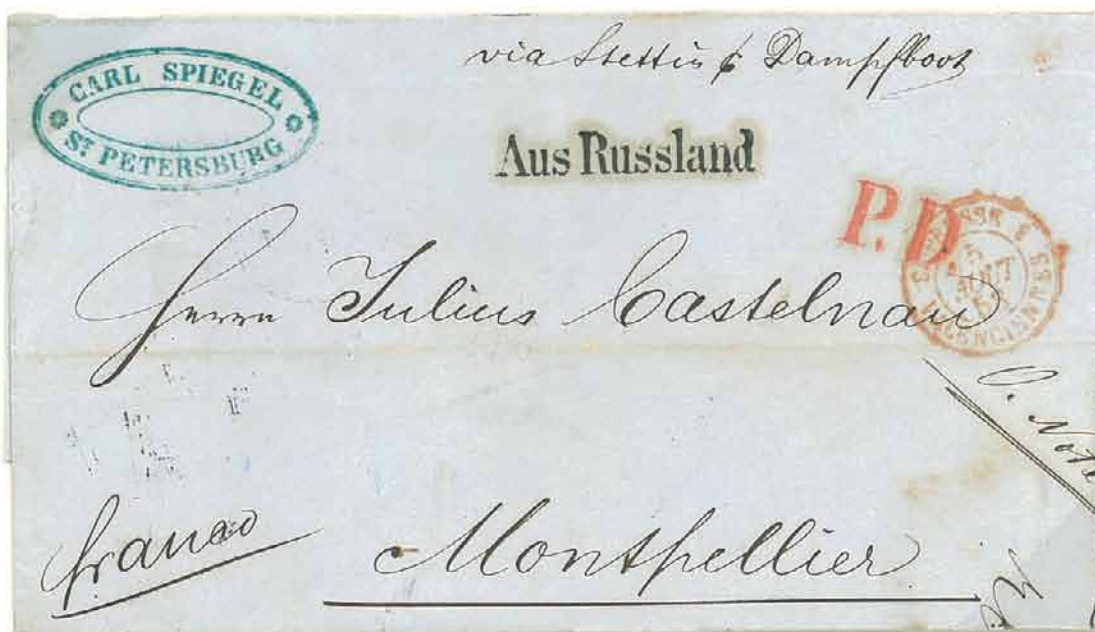 CARL SPIEGEL
ST PETERSBURG
via Stettin p Dampfboot
Aus Russland
P.D
AOUT
VALENCIENNES
Herrn Julius Castelnau
franco
Montpellier